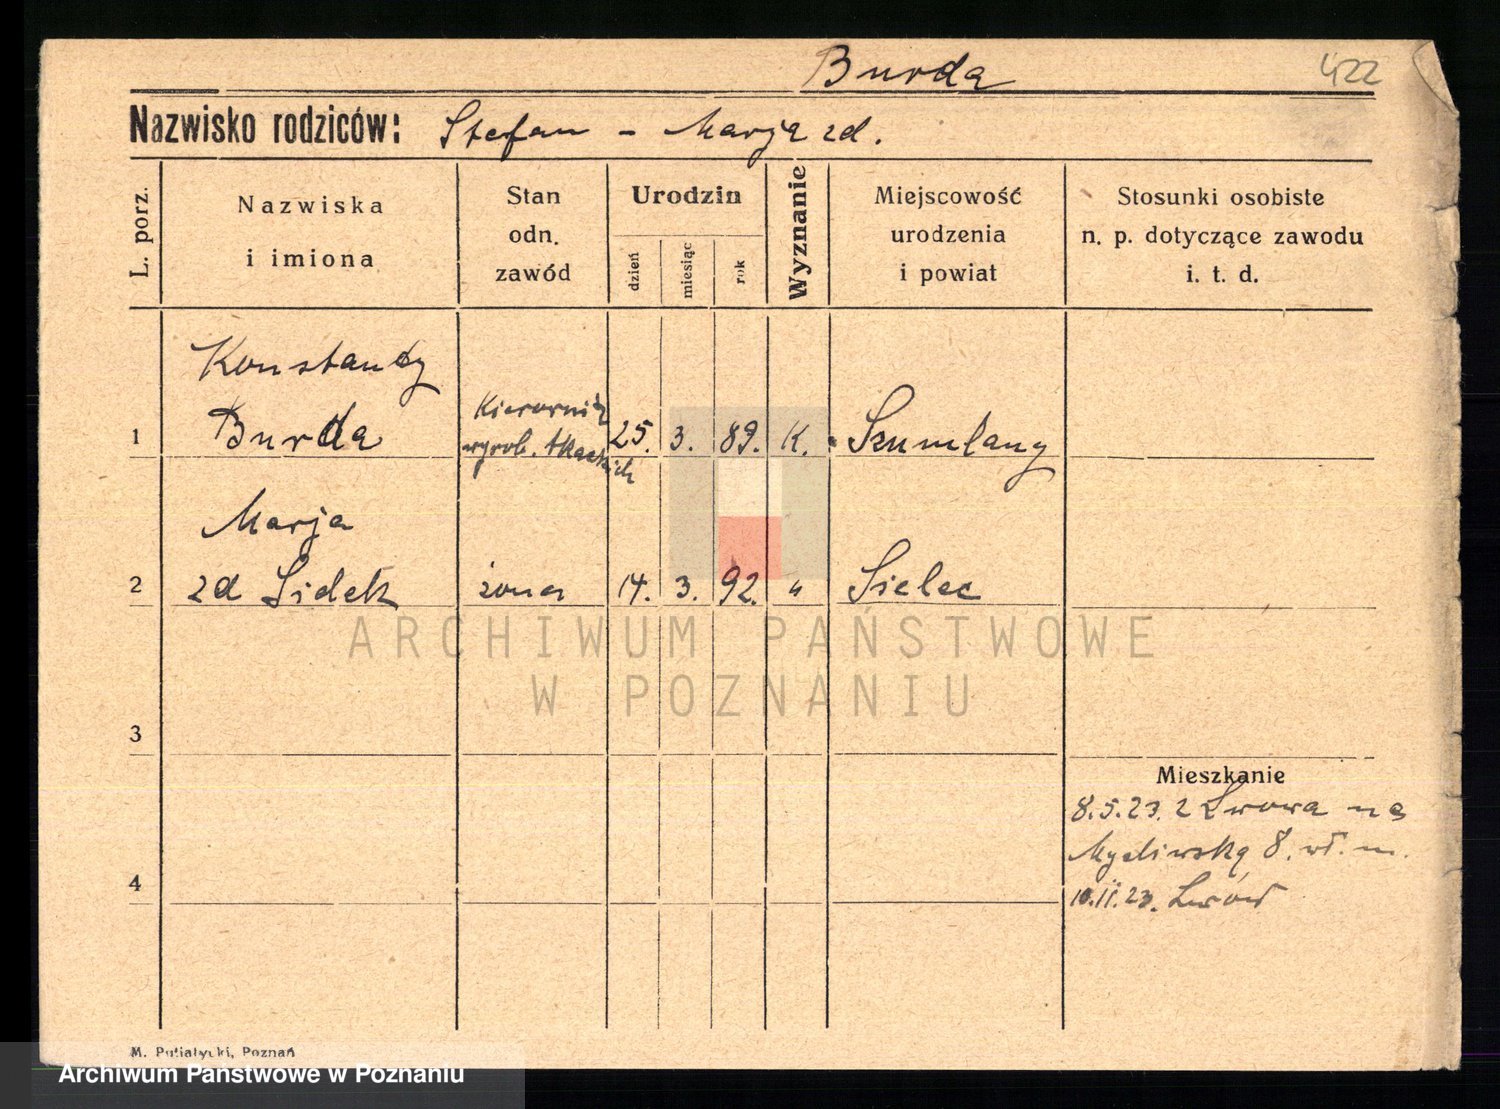 Burda
422
Nazwisko rodziców: Stefan - Marja zd.
L. porz.
Nazwiska
i imiona
Stan
odn.
zawód
Urodzin
dzień
miesiąc
rok
Wyznanie
Miejscowość
urodzenia
i powiat
Stosunki osobiste
n. p. dotyczące zawodu
i. t. d.
Konstanty
1 Burda
Kierownik
wyrob. tkackich
25. 3. 89. K. Szumlany
Marja
2 zd Sidek żona 14. 3. 92. " Sielec
3
4
Mieszkanie
8.5.23. z Lwowa na
8. wł. m.
10.II.23. Lwów
ARCHIWUM PAŃSTWOWE
W POZNANIU
M. Putiatycki, Poznań
Archiwum Państwowe w Poznaniu